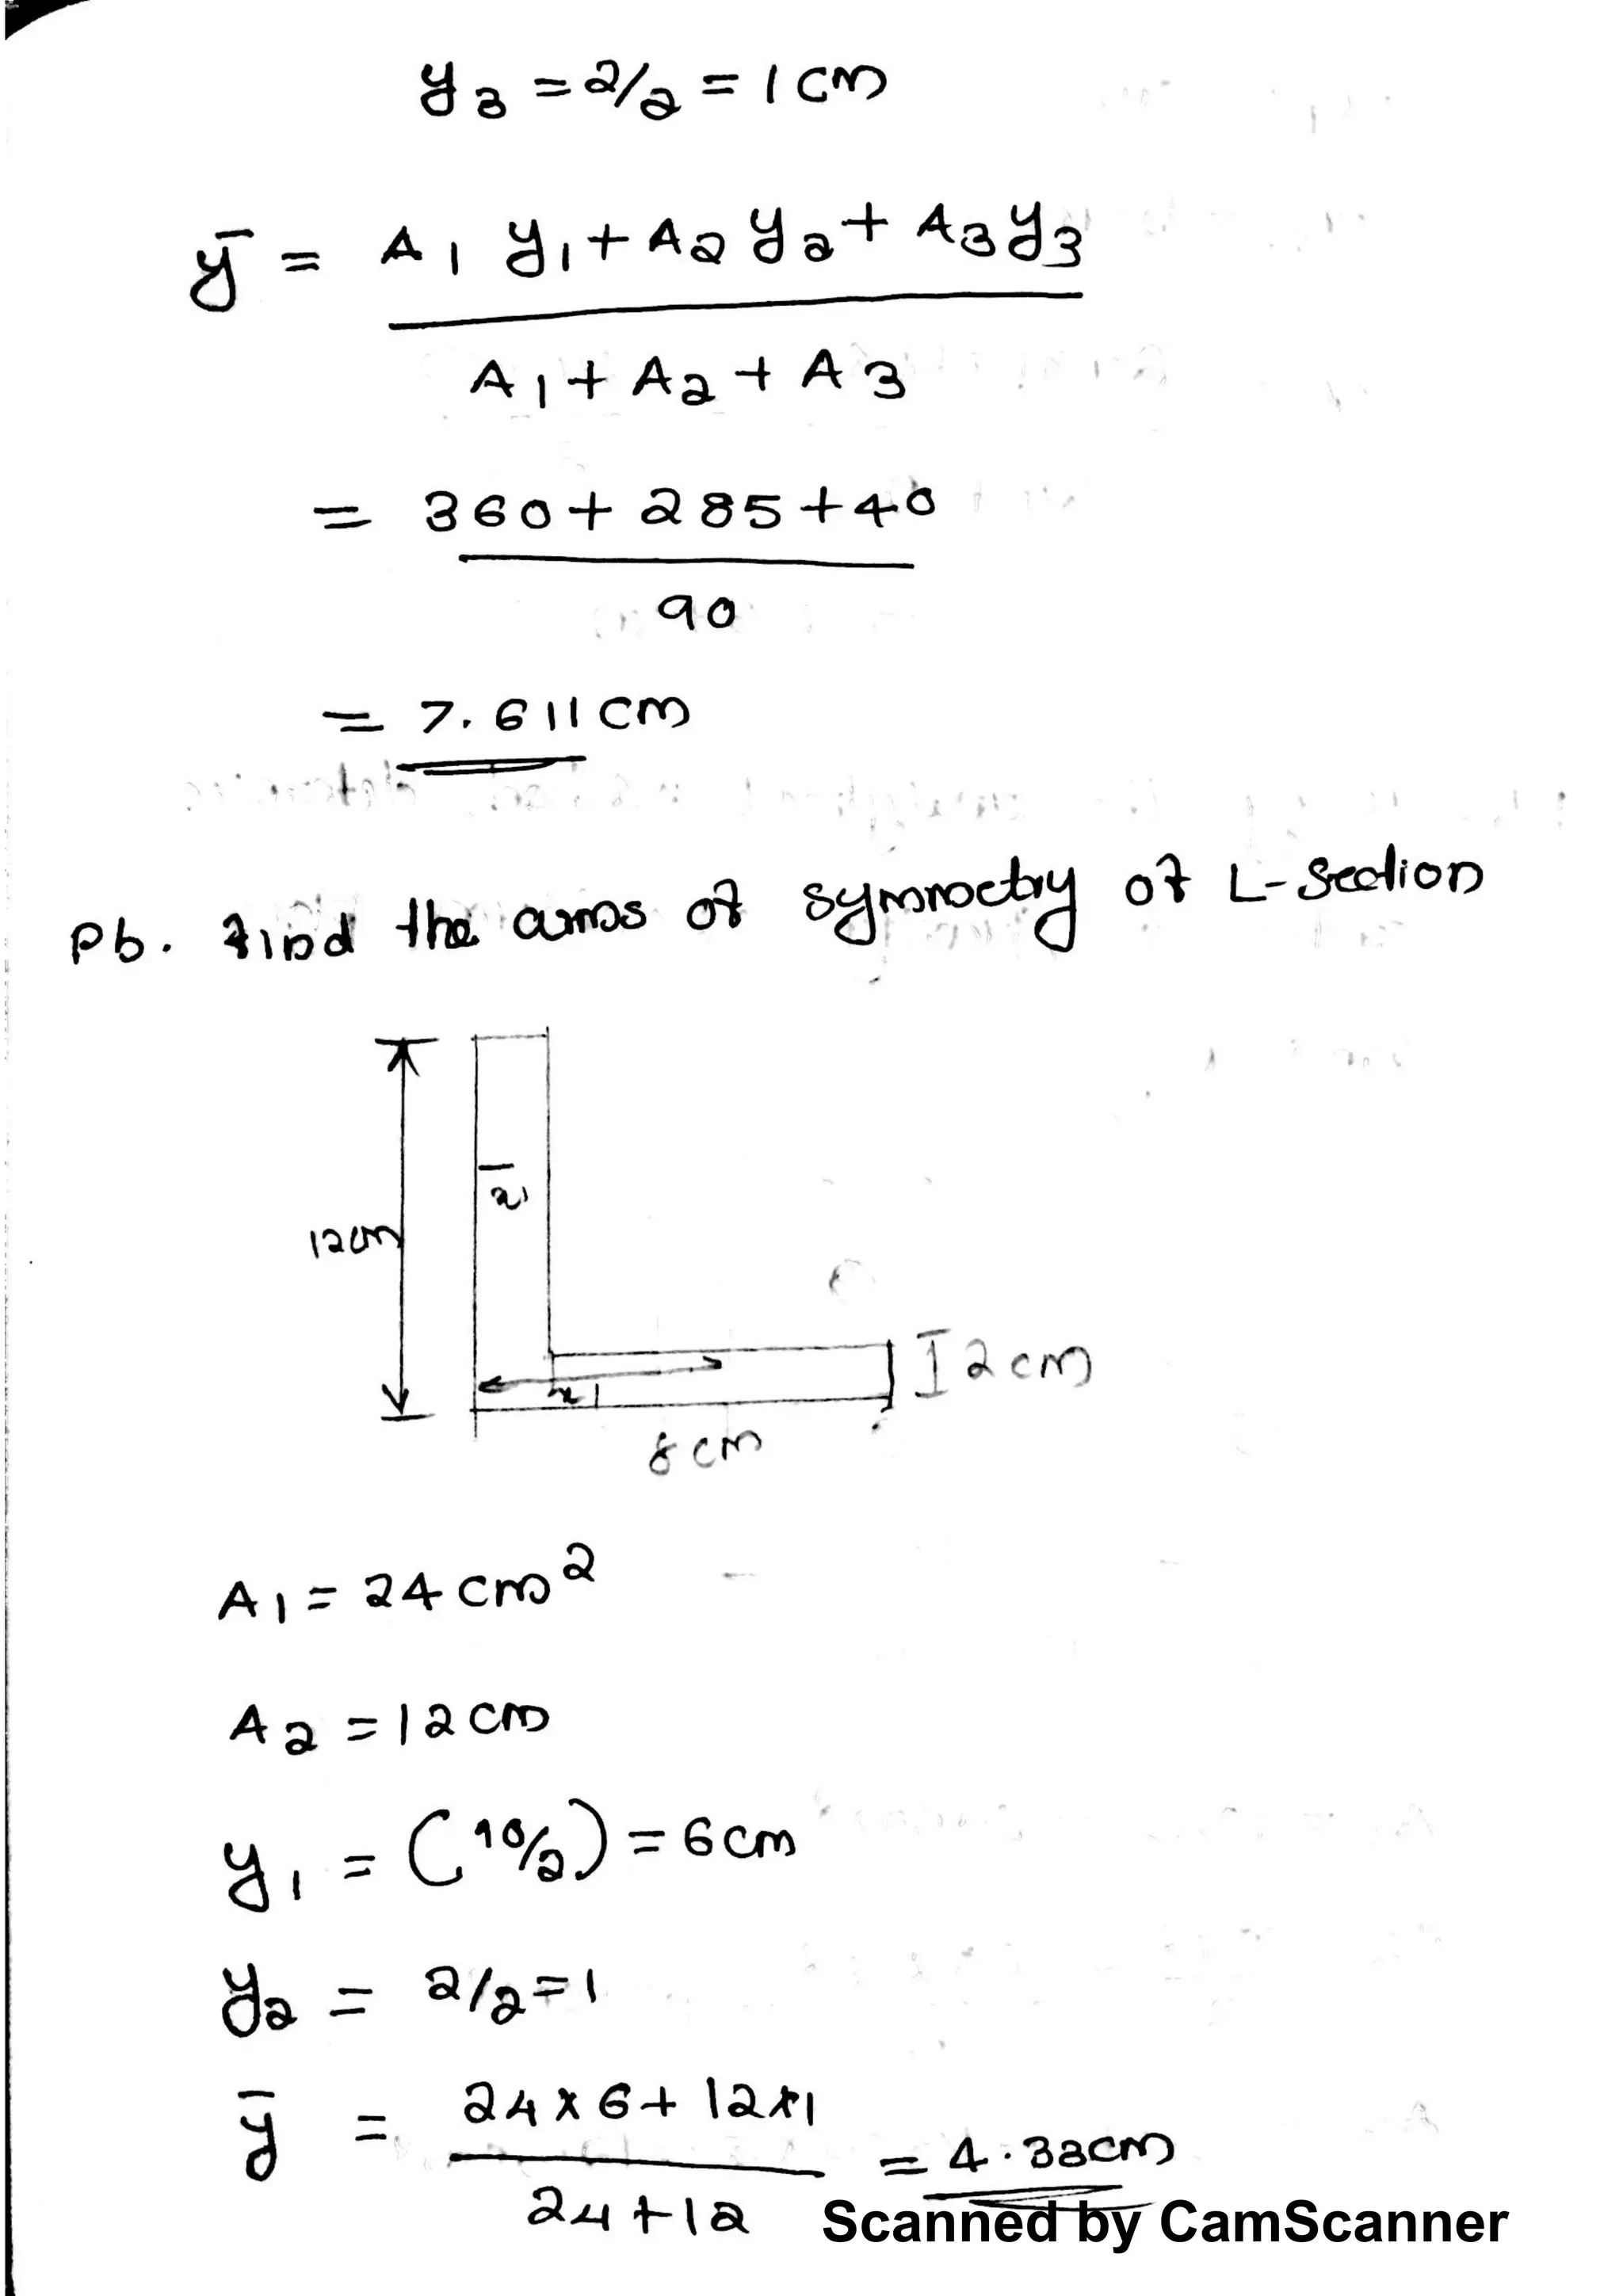 y3 = 2/2 = 1 cm
ȳ = A1 y1 + A2 y2 + A3 y3
A1 + A2 + A3
= 360 + 285 + 40
90
= 7.611 cm
Pb. Find the of symmoctry of L-Section
12cm
2 cm
x1
8 cm
A1 = 24 cm²
A2 = 12 cm
y1 = (10/2) = 6 cm
y2 = 2/2 = 1
ȳ = 24 x 6 + 12 x 1 = 4.33cm
24 + 12
Scanned by CamScanner